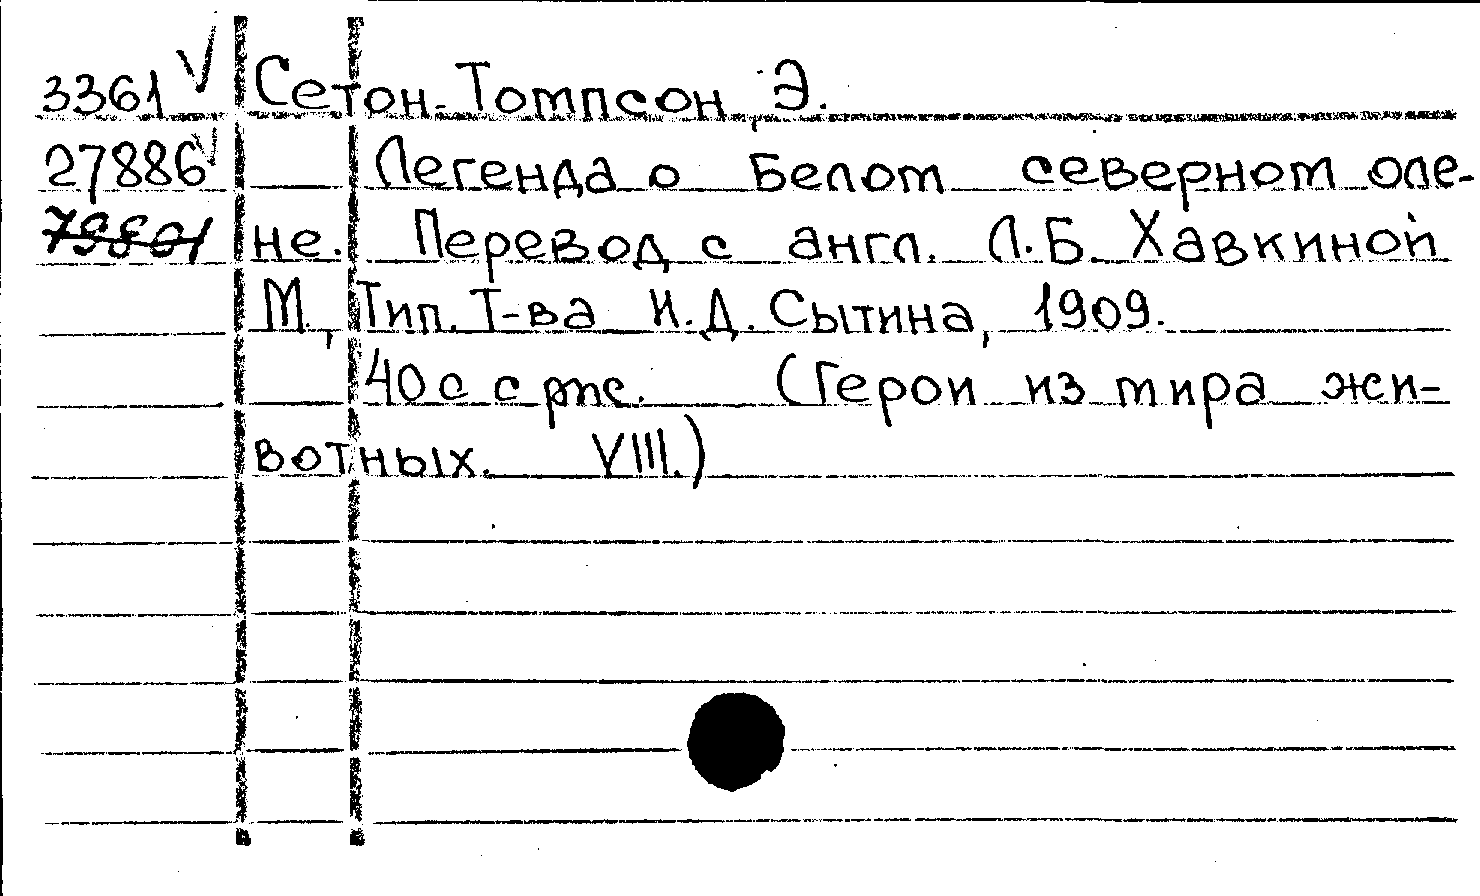 3361 V Сетон-Томпсон, Э.
27886 V Легенда о Белом северном оле-
79801 не. Перевод с англ. Л.Б. Хавкиной
М., Тип. Т-ва И.Д. Сытина, 1909.
40 с с рис. (Герои из мира жи-
вотных. VIII.)